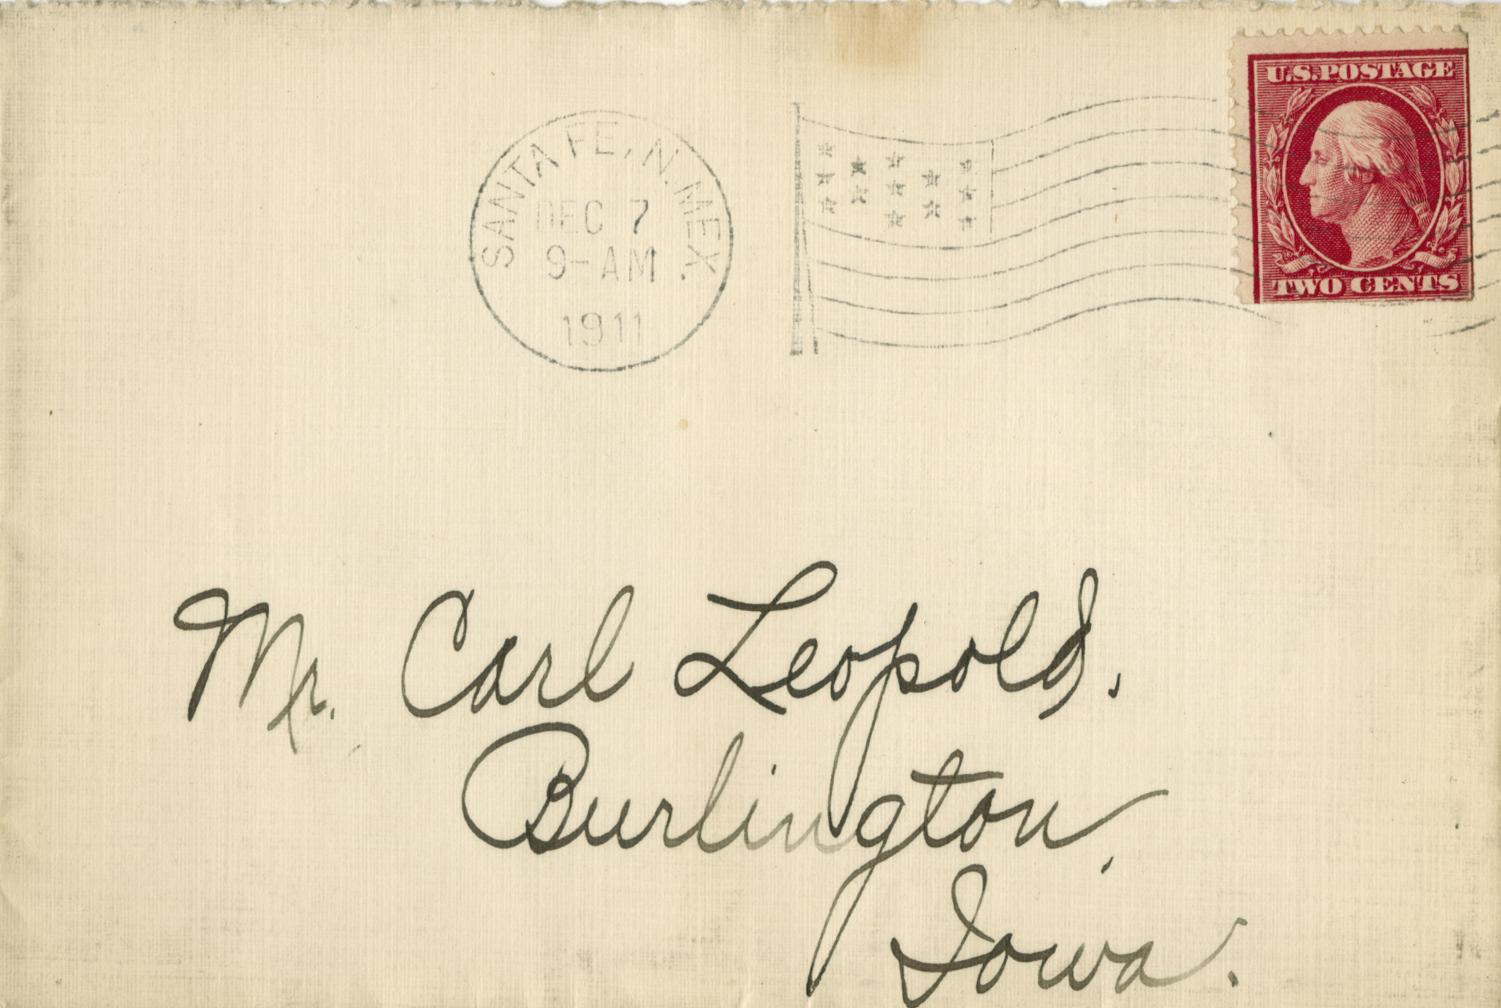 U.S. POSTAGE
TWO CENTS
SANTA FE, N. MEX.
DEC 7
9-AM
1911
Mr. Carl Leopold.
Burlington,
Iowa.